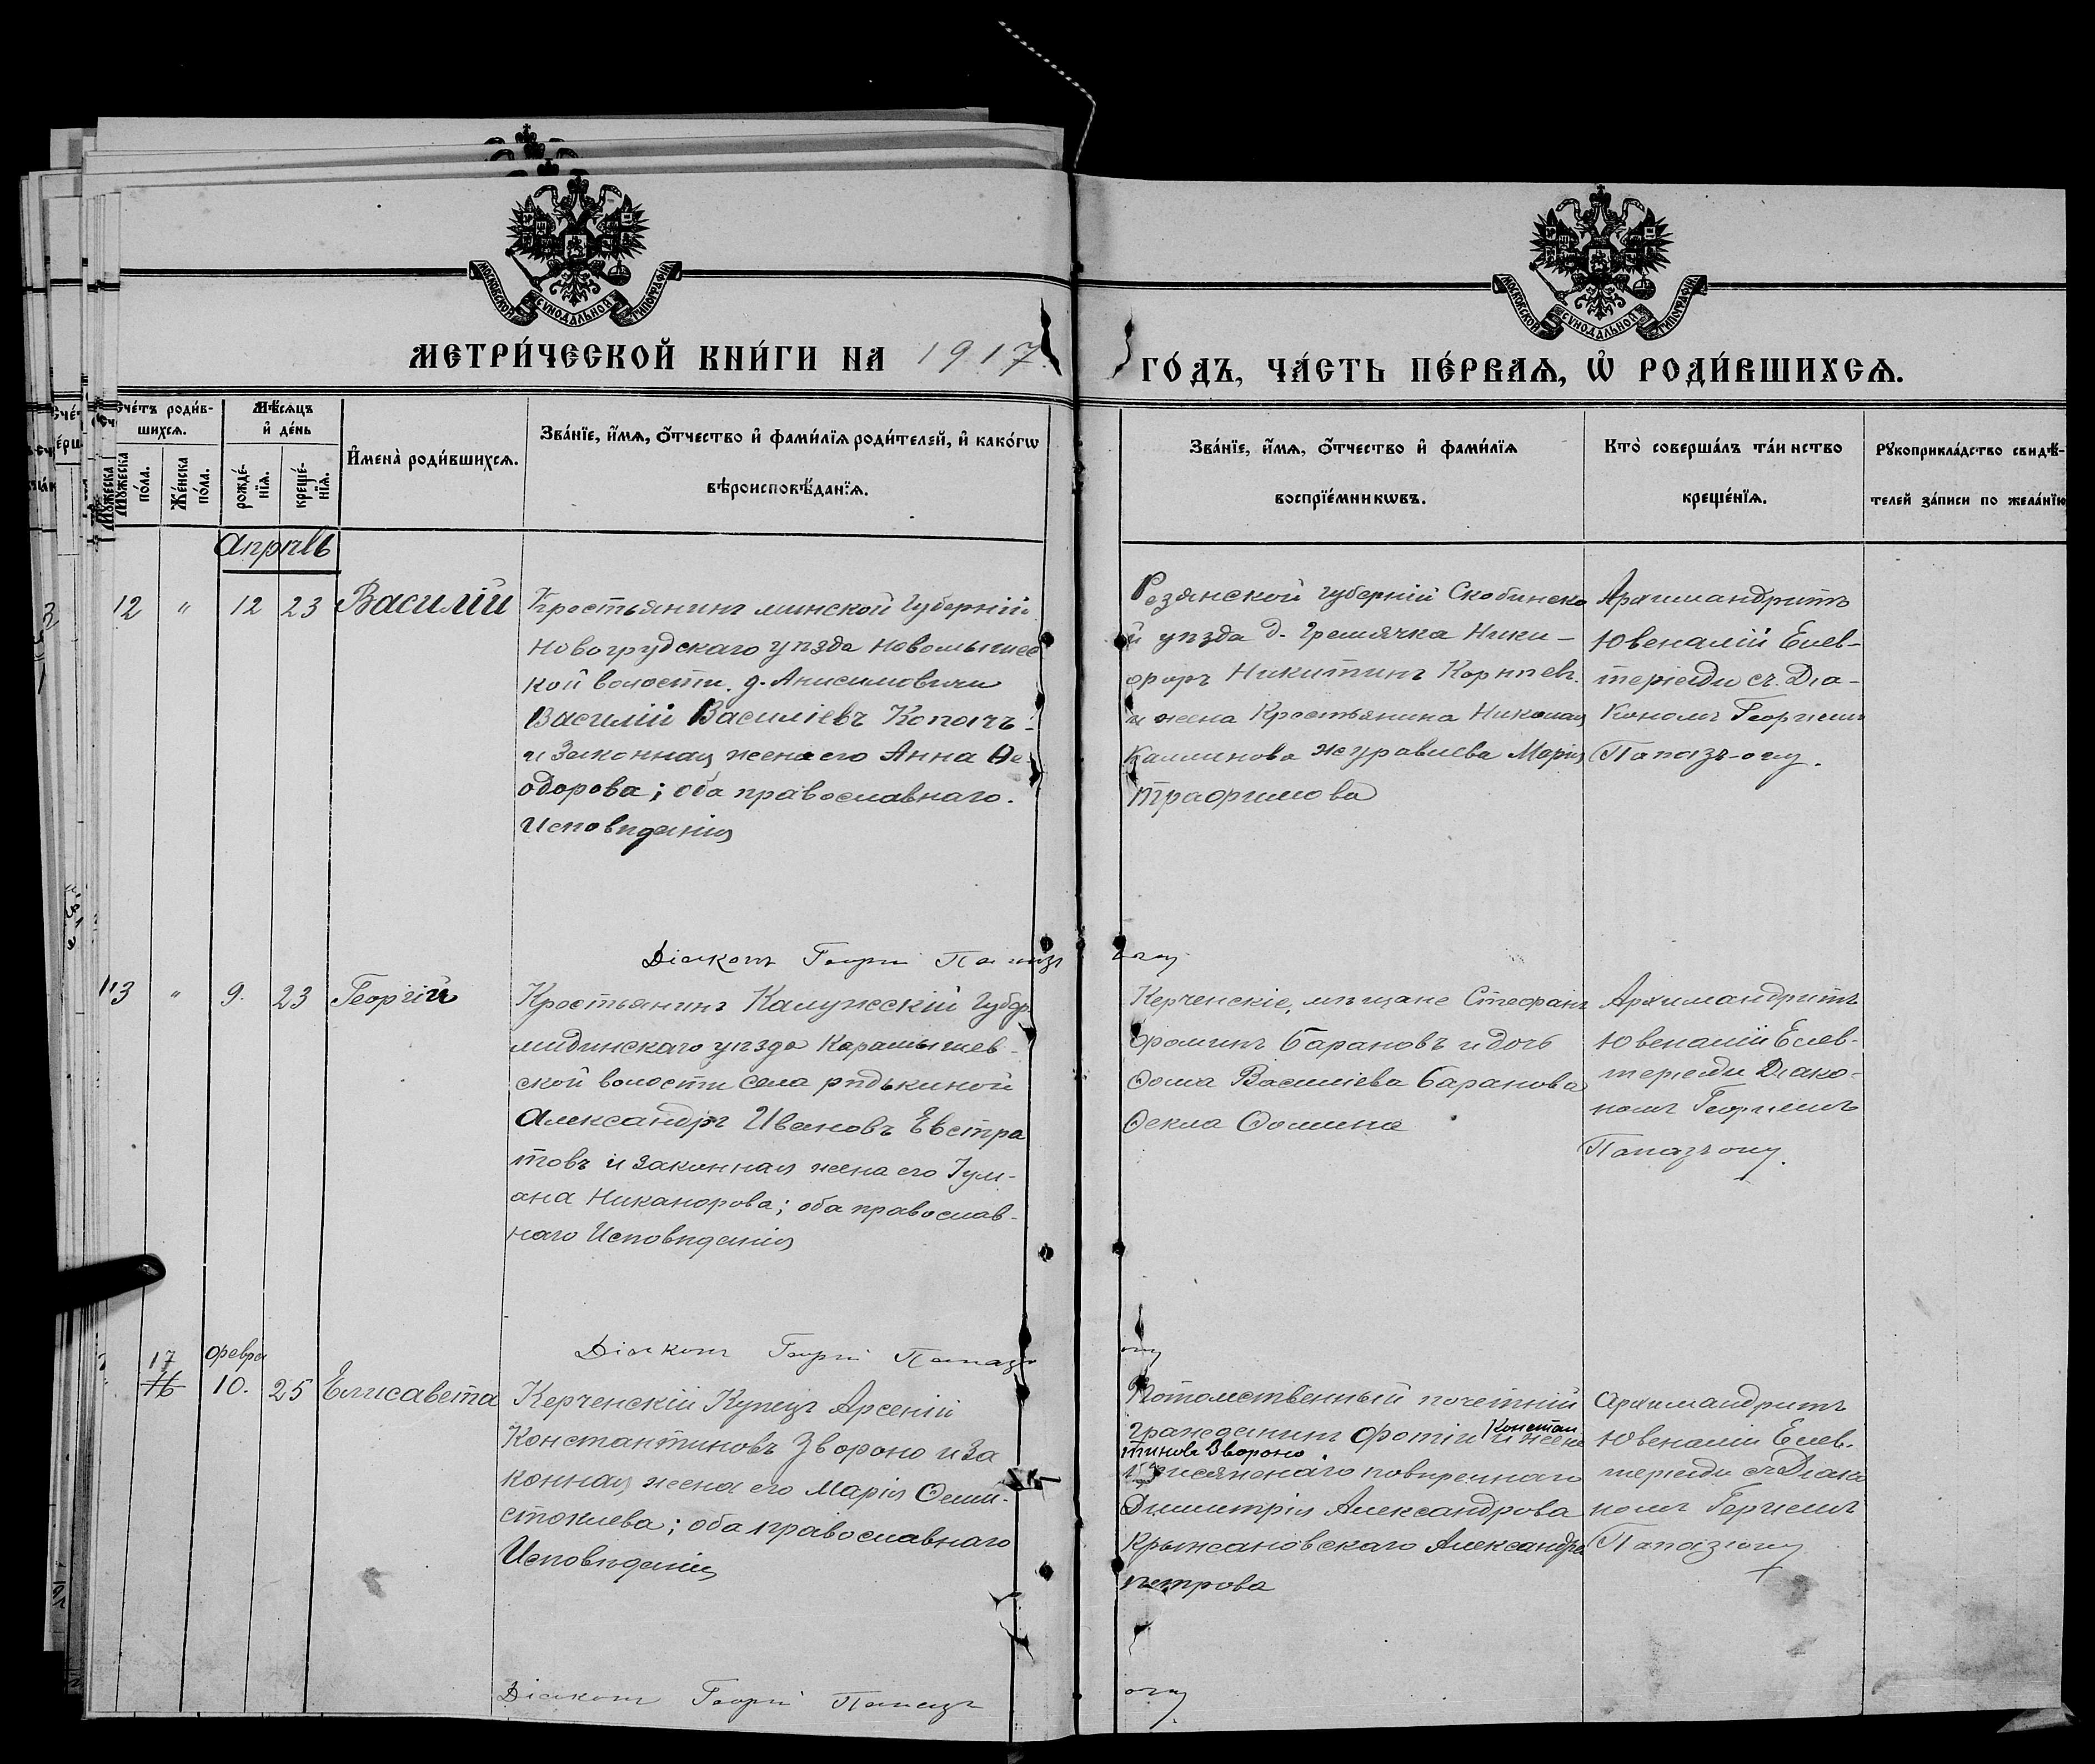 МОСКОВСКОЙ СУНОДАЛЬНОЙ ТИПОГРАФІИ
МОСКОВСКОЙ СУНОДАЛЬНОЙ ТИПОГРАФІИ
МЕТРИ́ЧЕСКОЙ КНИ́ГИ НА 1917
ГО́ДЪ, ЧА́СТЬ ПЕ́РВАѦ, Ѡ҆ РОДИ́ВШИХСѦ.
Счéтъ роди́в-
шихсѧ.
Мꙋжеска
по́ла.
Же́нска
по́ла.
Мѣ́сѧцъ
и҆ де́нь
рожде́-
нїѧ.
креще́-
нїѧ.
И҆мена̀ роди́вшихсѧ.
Зва́нїе, и҆́мѧ, ѻ҆́тчество и҆ фами́лїѧ роди́телей, и҆ како́гѡ
вѣроисповѣ́данїѧ.
Зва́нїе, и҆́мѧ, ѻ҆́тчество и҆ фами́лїѧ
воспрїе́мникѡвъ.
Кто̀ соверша́лъ та́инство
креще́нїѧ.
Рꙋкоприкла́дство свидѣ́-
телей за́писи по жела́нїю
Апрѣль
12 " 12 23 Василій
Крестьянинъ минской Губерній
Новогрудскаго уѣзда Новомышес
кой волости. д. Анисимовичи
Василій Василіевъ Копачъ
и Законная жена его Анна Ѳе
одорова; оба православнаго.
Исповѣданія
Резянской губерній Скобинско
й уѣзда д. Гремячка Ники-
форъ Никитинъ Корнѣев.
и жена Крестьянина Николая
Калинова Журавлева Марія
Трафимова
Архимандритъ
Ювеналій Елев-
теріади съ Діа-
кономъ Георгіемъ
Папазъ-оглу.
Діаконъ Георгій Папазъ
оглу
13 " 9. 23 Георгій
Крестьянинъ Калужскій Губер.
мидинскаго уѣзда Карамышев-
ской волости села рѣдькиной
Александръ Ивановъ Евстра
товъ и законная жена его Іули-
ана Никанорова; оба православ-
наго Исповѣданія
Керченскіе, мѣщане Стефанъ
Фоминъ Барановъ и дочь
Фома Василіева Баранова
Ѳекла Ѳомина
Архимандритъ
Ювеналій Елев-
теріади Діако-
номъ Георгіемъ
Папазъоглу.
Діаконъ Георгій Папазъ
оглу
17 февра
16 10. 25 Елисавета
Керченскій Купецъ Арсеній
Константиновъ Звороно и За
конная жена его Марія Ѳеми-
стоклева; оба православнаго
Исповѣданія
Потомственный почетній
гражданинъ Фотій Констан
тиновъ Звороно и жена
присяжнаго повѣреннаго
Димитрія Александрова
Крыжановскаго Александра
петрова
Архимандритъ
Ювеналій Елев-
теріади съ Діако
номъ Георгіемъ
Папазъоглу
Діаконъ Георгій Папазъ
оглу